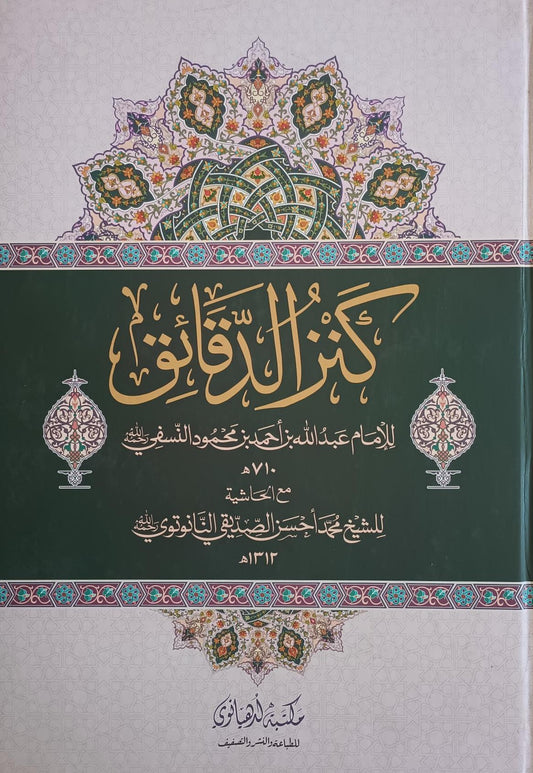 كَنْزُ الدَّقَائِق
للإمام عبد الله بن أحمد بن محمود النسفي رحمه الله
٧١٠هـ
مع الحاشية
للشيخ محمد أحسن الصديقي النانوتوي رحمه الله
١٣١٢هـ
مكتبة لدهيانوي
للطباعة والنشر والتصفيف